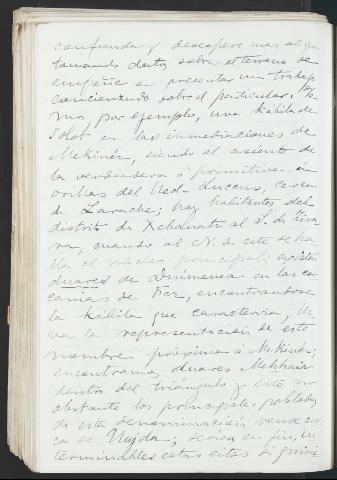 confunda y desespere mas al que
tomando datos sobre el terreno se
empeñe en presentar un trabajo
concienzudo sobre el particular. Te-
mos, por ejemplo, una kábila de
en las inmediaciones de
Mekinéz, siendo el asiento de
la verdadera ó primitiva á
orillas del Ued-Luccus, cerca
de Larache; hay habitantes del
distrito de al S. de
cuando al N. de este se ha-
lla el núcleo principal;
duares de en las cer-
canías de Fez, encontrandose
la kábila que caracteriza y lle-
va la representación de este
nombre próxima á Mekinéz;
encontramos duares
dentro del triángulo y esto no
obstante los principales poblados
de esta denominación
ca de Uxjda; serían en fin, in-
terminables estas citas si